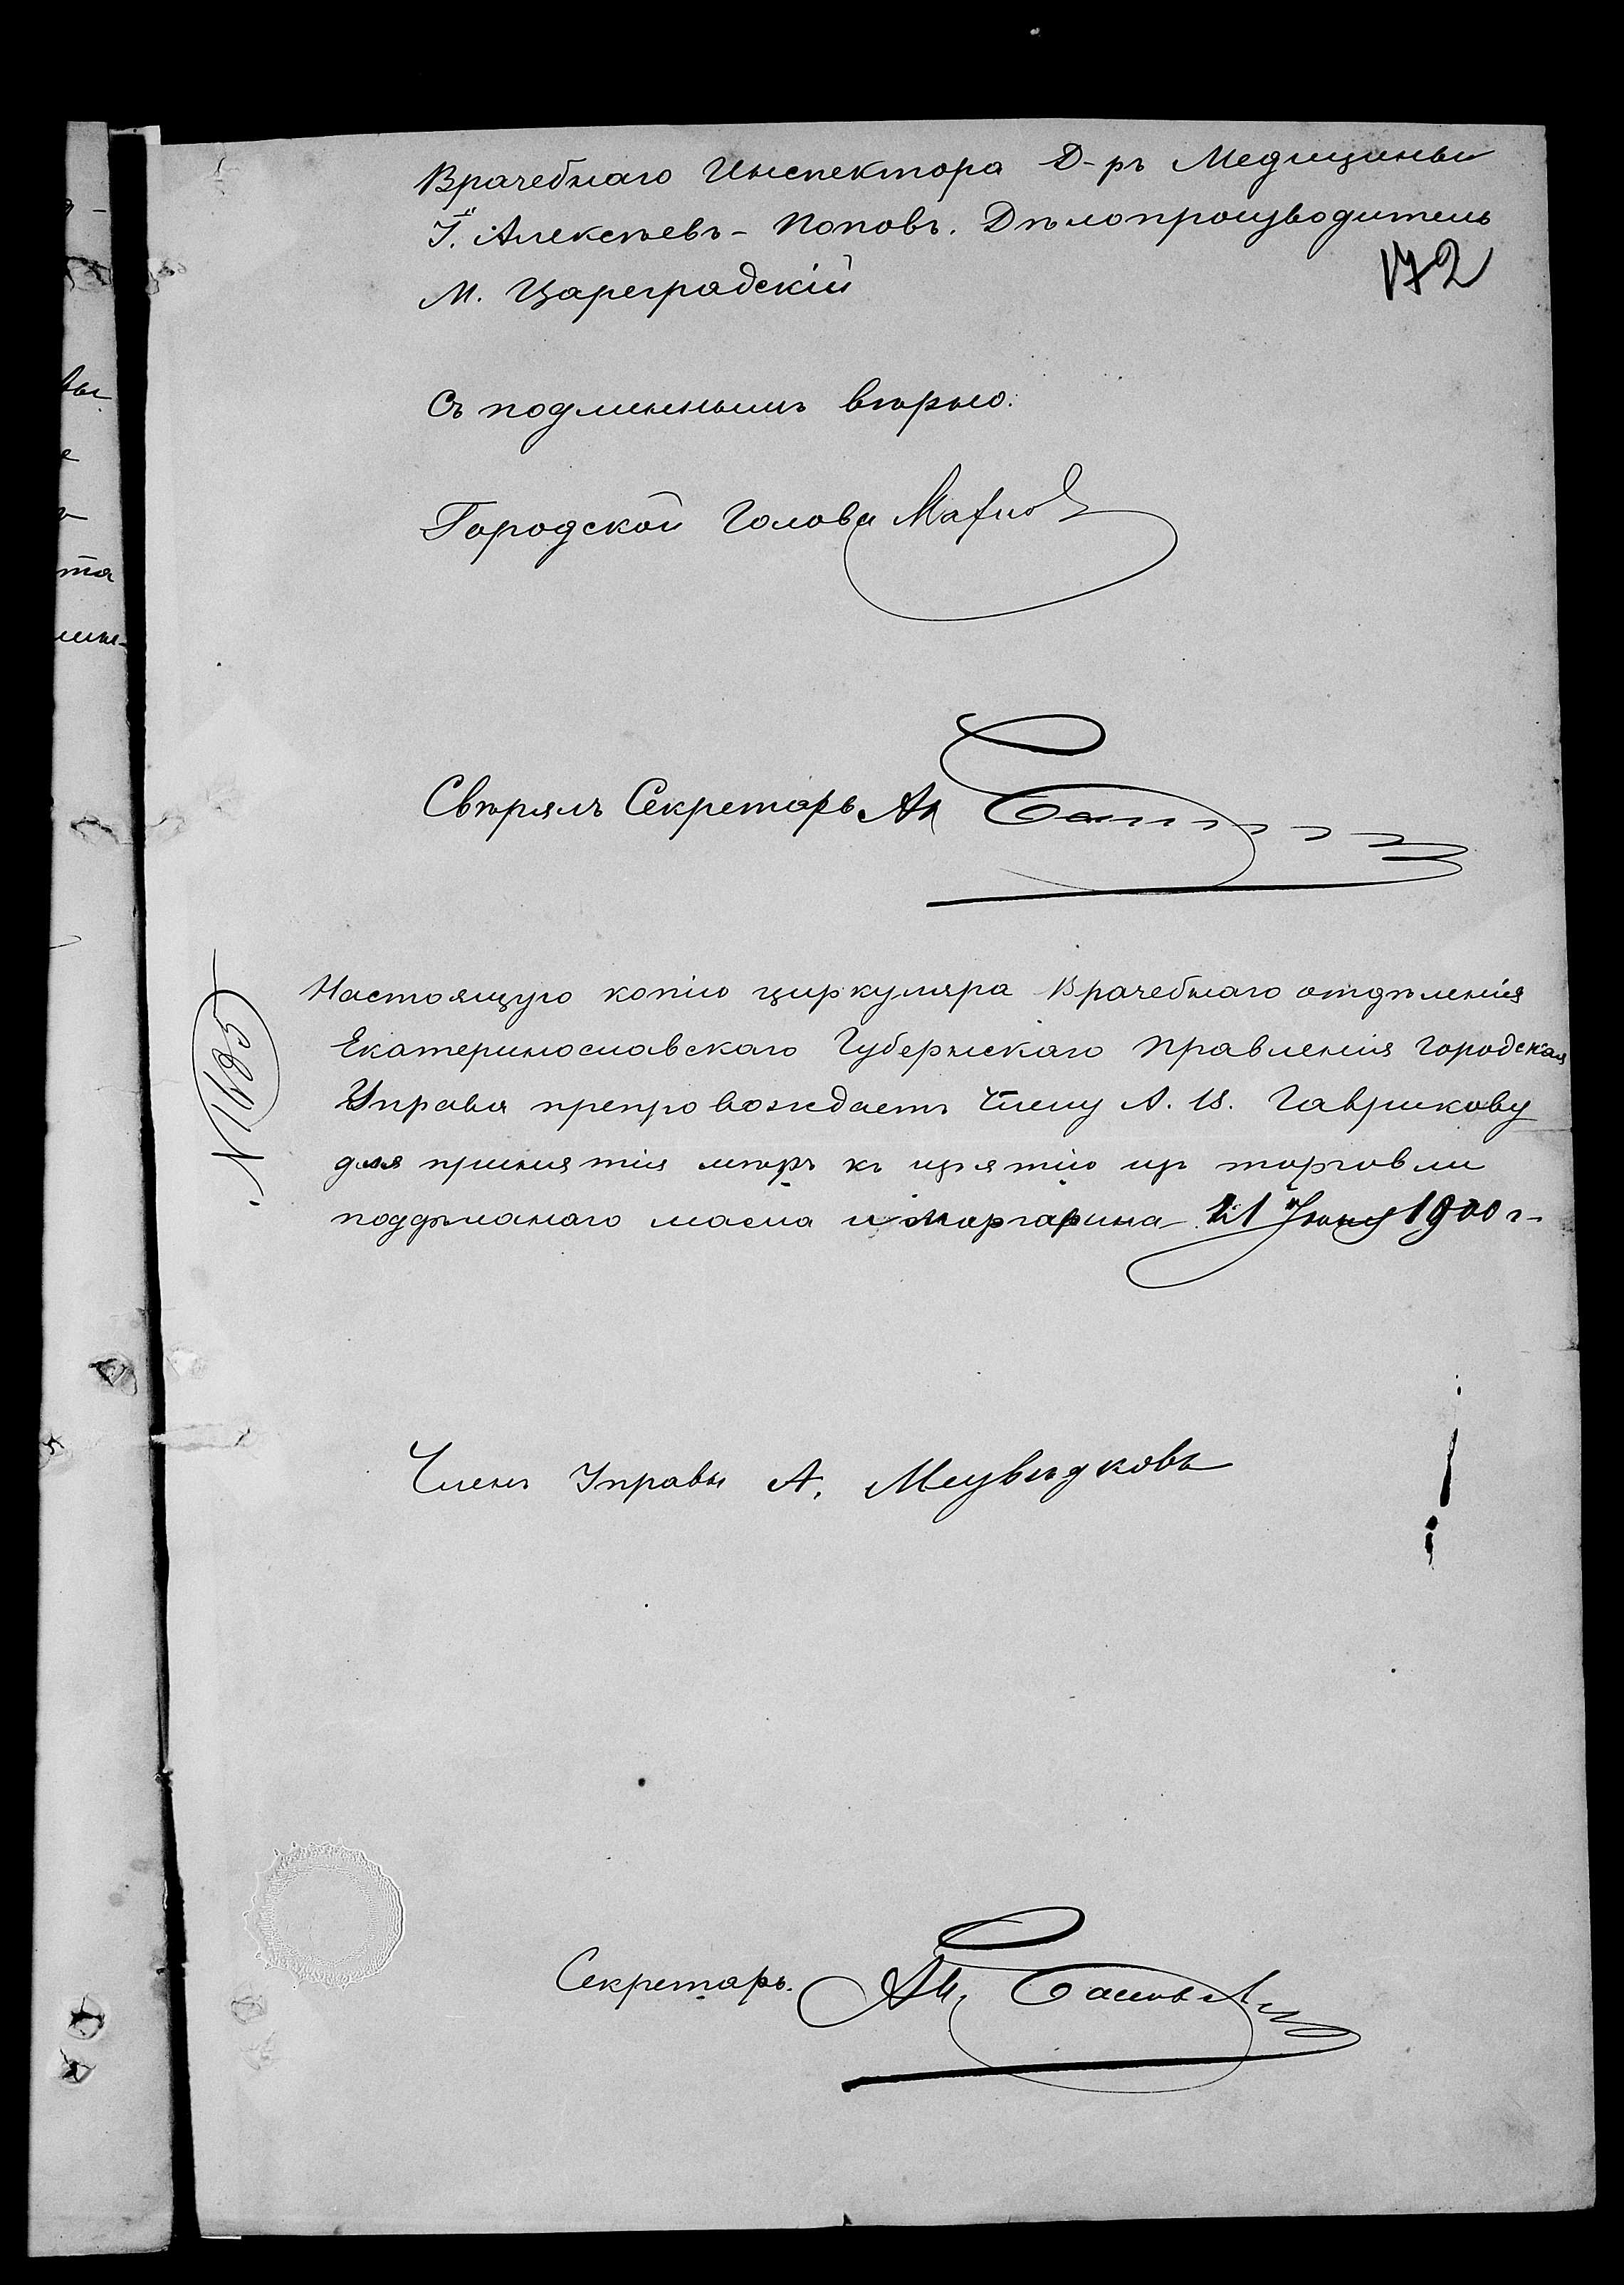 Врачебнаго Инспектора Д-ръ Медицины
І. Алексѣевъ-Поповъ. Дѣлопроизводитель
М. Цареградскій
172
Съ подлиннымъ вѣрно:
Городской Голова
Свѣрялъ Секретарь
Настоящую копію циркуляра Врачебнаго отдѣленія
Екатеринославскаго Губернскаго Правленія Городская
Управа препровождаетъ Члену А. И. Гаврикову
для принятія мѣръ къ изъятію изъ торговли
поддѣланаго масла и маргарина 21 Іюня 1900 г-
Членъ Управы А.
Секретарь.